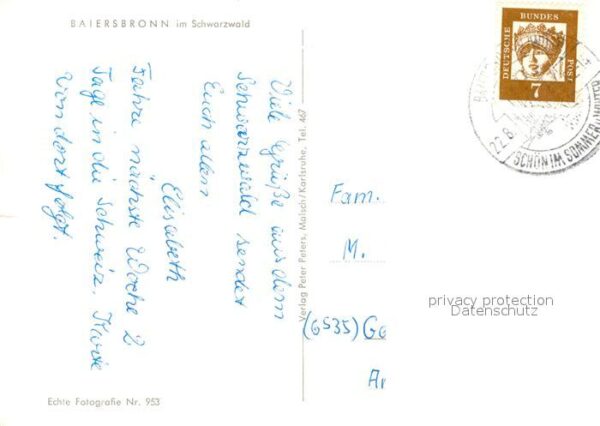 BAIERSBRONN im Schwarzwald
Viele Grüße aus dem
Schwarzwald sendet
Euch allen
Elisabeth
Fahre nächste Woche 2
Tage in die Schweiz. Karte
von dort folgt.
Echte Fotografie Nr. 953
Verlag Peter Peters, Malsch/Karlsruhe, Tel. 467
DEUTSCHE BUNDES POST
7
22.8.
SCHÖN IM SOMMER u. WINTER
Fam.
M.
(6535) Ge
Ar
privacy protection
Datenschutz